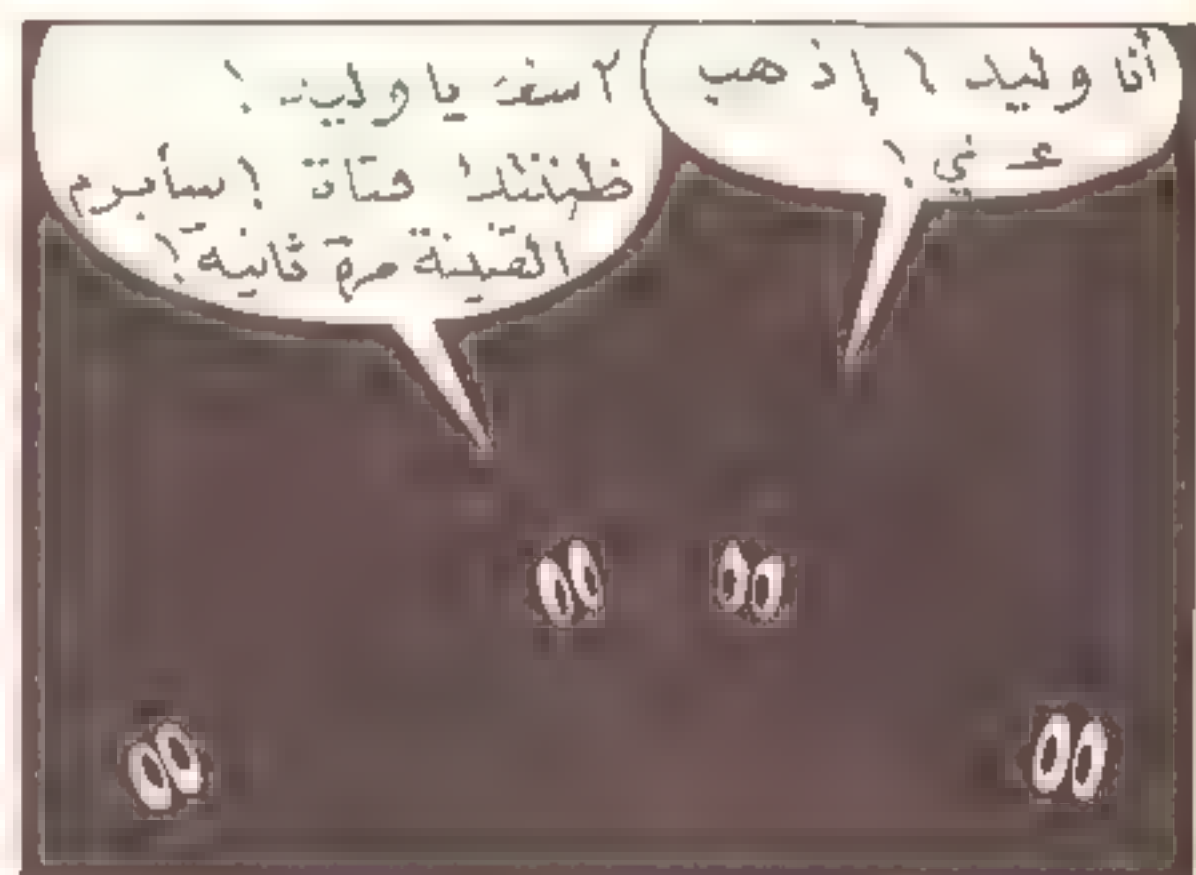 أنا وليد ! إذهب
عني !
آسف يا وليد !
ظننتك فتاة ! سأبرم
القنينة مرة ثانية !